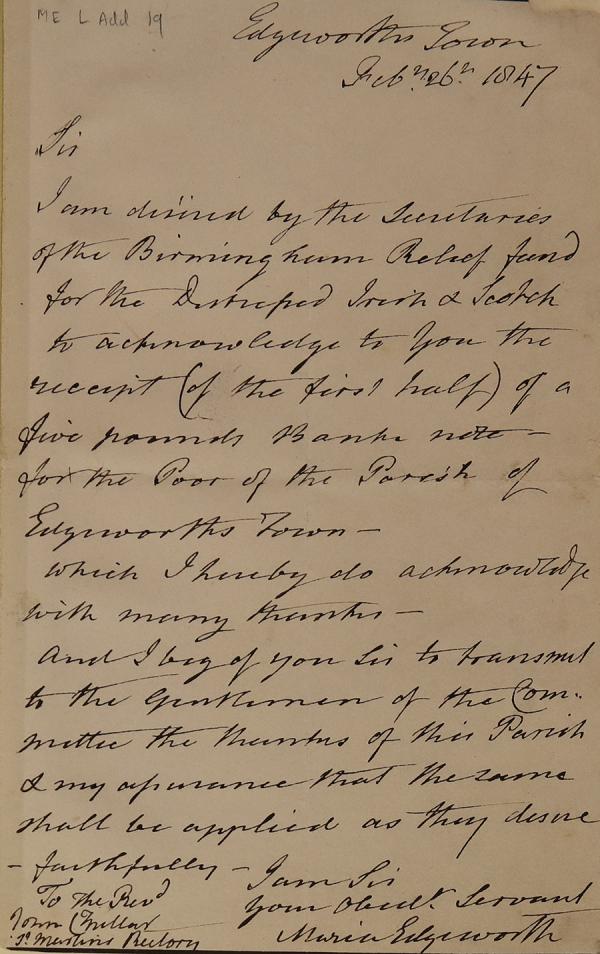 ME L Add 19
Edgeworths Town
Feby. 26th 1847
Sir
I am desired by the Secretaries
of the Birmingham Relief fund
for the Distressed Irish & Scotch
to acknowledge to You the
receipt (of the first half) of a
five pounds Bank note –
for the Poor of the Parish of
Edgeworths Town –
which I hereby do acknowledge
with many thanks –
And I beg of you Sir to transmit
to the Gentlemen of the Com-
mittee the thanks of this Parish
& my assurance that the same
shall be applied as they desire
– faithfully –
I am Sir
your Obedt. Servant
Maria Edgeworth
To the Revd
John
St Martins Rectory